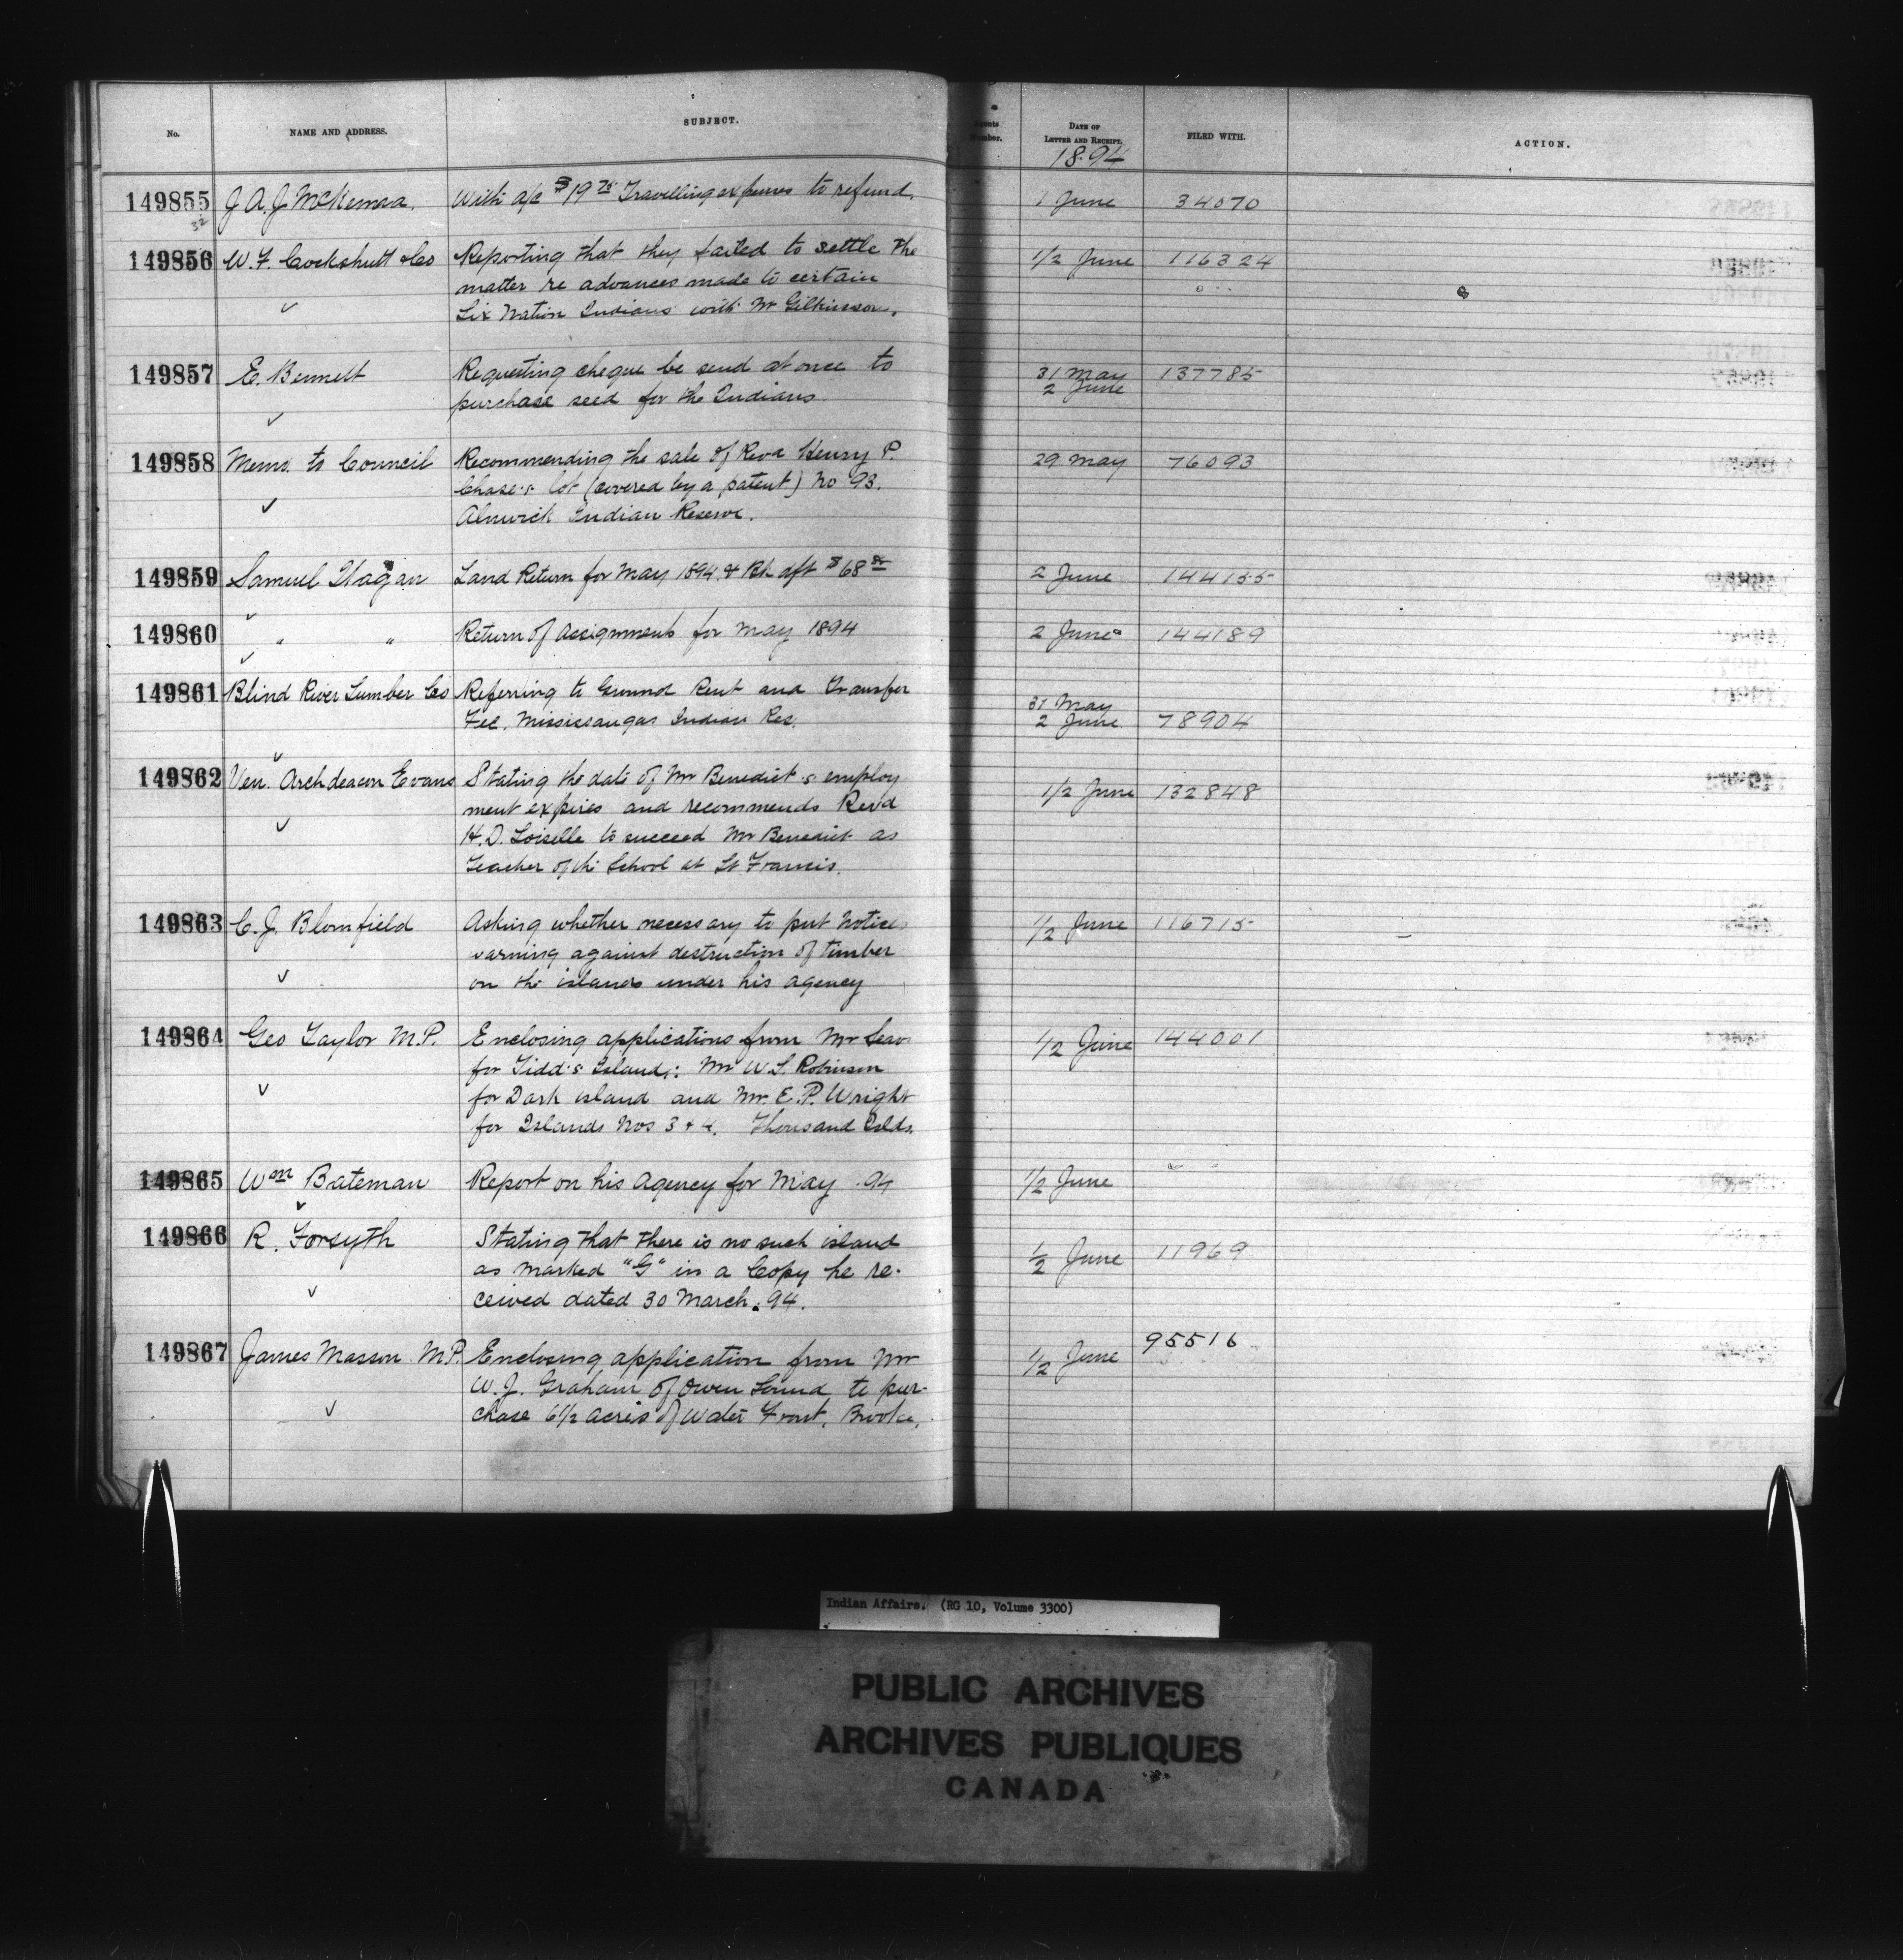 No.
NAME AND ADDRESS.
SUBJECT.
Agents
Number.
DATE OF
LETTER AND RECEIPT.
1894
FILED WITH.
ACTION.
149855 J A. J McKenna. With a/c $19 75 Travelling expenses to refund. 1 June 34070
32
149856 W. F. Cockshutt & Co Reporting that they failed to settle the 1/2 June 116324
matter re advances made to certain
Six Nation Indians with Mr Gilkinson.
149857 E. Bennett Requesting cheque be send at once to 31 May 137785
purchase seed for the Indians. 2 June
149858 Memo. to Council Recommending the sale of Revd Henry P. 29 May 76093
Chase's lot (covered by a patent) No 93.
Alnwick Indian Reserve.
149859 Samuel Hagan Land Return for May 1894 & Bk dft $68 2 June 144155
149860 " " Return of Assignments for May 1894 2 June 144189
149861 Blind River Lumber Co Referring to Ground Rent and Transfer 31 May
Fee. Mississaugas Indian Res. 2 June 78904
149862 Ven. Archdeacon Evans Stating the date of Mr Benedict's employ 1/2 June 132848
ment expires and recommends Revd
H. D. Loiselle to succeed Mr Benedict as
Teacher of the School at St Francis.
149863 C. J. Blomfield Asking whether necessary to put notices 1/2 June 116715
warning against destruction of timber
on the islands under his agency
149864 Geo Taylor M.P. Enclosing applications from Mr 1/2 June 144001
for Tidd's Island.: Mr W. S. Robinson
for Dark island and Mr. E. P. Wright
for Islands Nos 3 & 4. Thousand Islds.
149865 Wm Bateman Report on his Agency for May .94 1/2 June
149866 R. Forsyth Stating that there is no such island 1/2 June 11969
as marked "G" in a Copy he re-
ceived dated 30 March. 94.
149867 James Masson M.P. Enclosing application from Mr 1/2 June 95516
W. J. Graham of Owen Sound to pur-
chase 6 1/2 acres of Water Front, Brooke.
Indian Affairs. (RG 10, Volume 3300)
PUBLIC ARCHIVES
ARCHIVES PUBLIQUES
CANADA